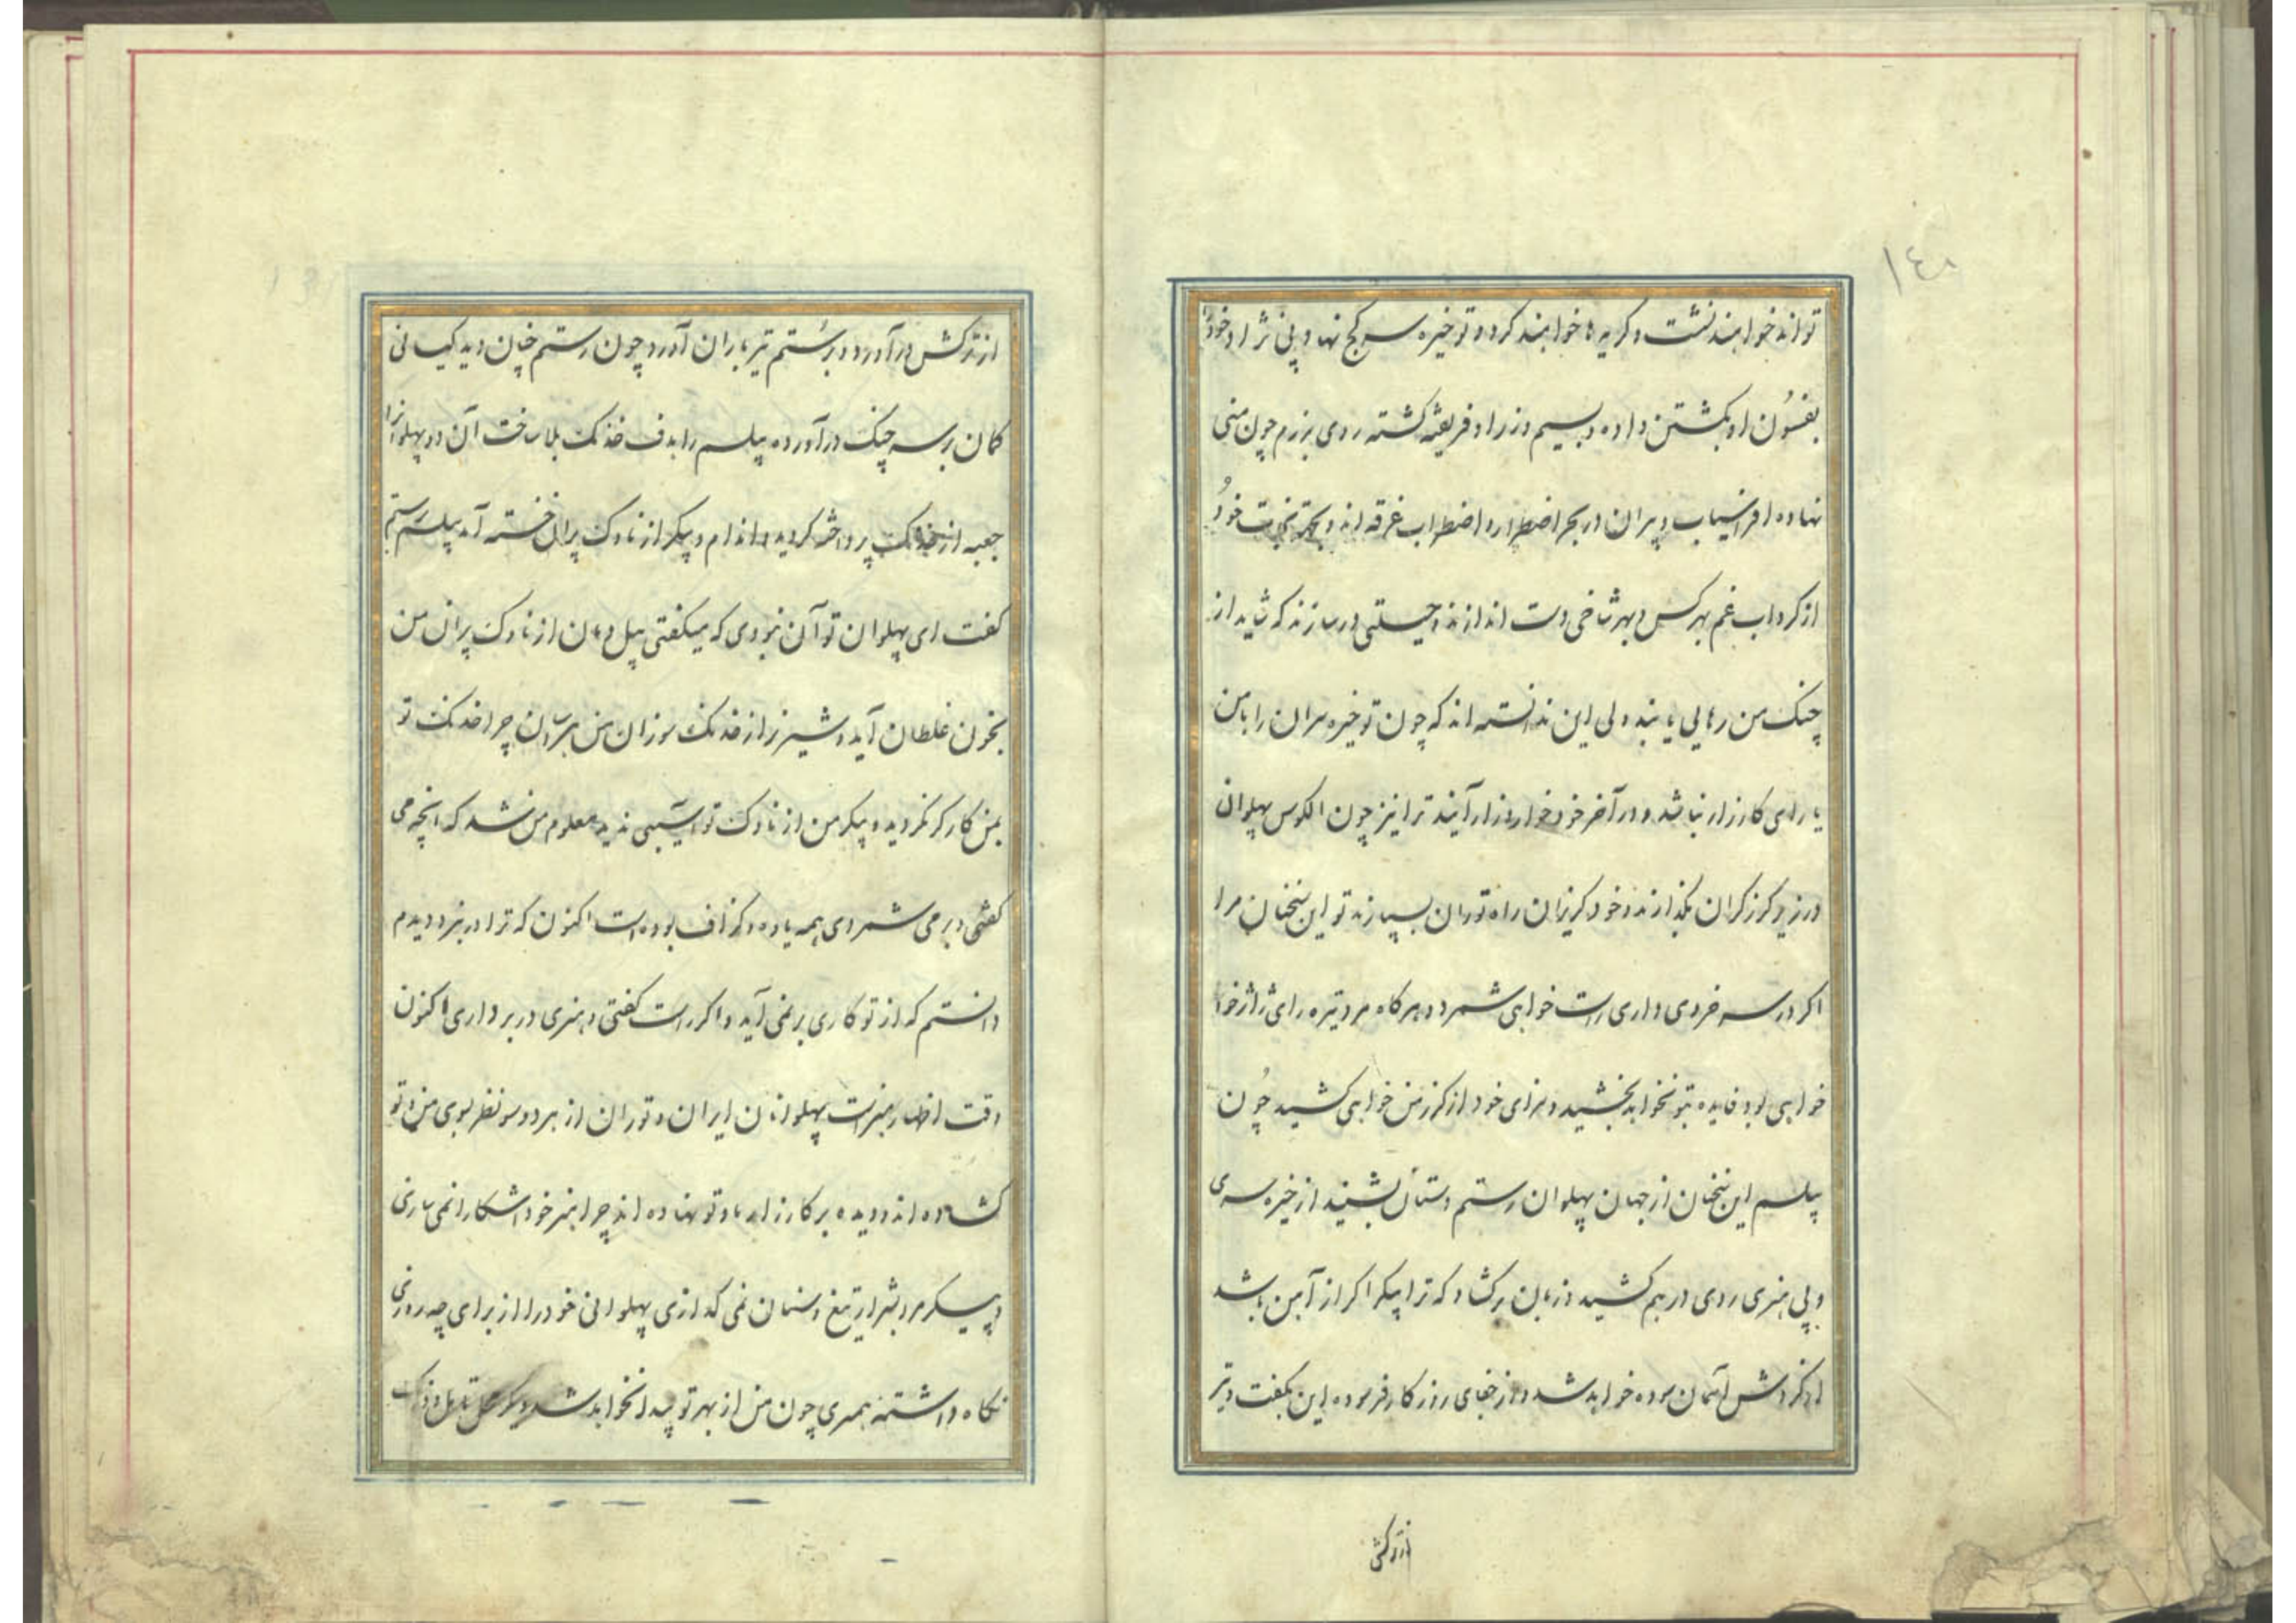 ١٤٠
تواند خواهند نشست و کریه ها خواهند کرد و تو خیره سر کج نهاد پی نژاد خود را
بفسُون او بکشتن داده و بسیم و زر او فریفته کشته روی برزم چون منی
نهاده افراسیاب و پیران در بحر اضطرار و اضطراب غرقه اند و بجهة نجات خودُ
از کرداب غم بهر کس و بهر شاخی دست اندازند و حیلتی در سازند که شاید از
چنک من رهایی یابند ولی این ندانسته اند که چون تو خیره سران را با من
یارای کارزار نباشد و در آخر خود خوار و زار آیند ترا نیز چون الکوس پهلوان
در زیر کرز کران بکذارند و خود کریزان راه توران بسپارند تو این سخنان مرا
اکر در سر خردی داری راست خواهی شمرد و هر کاه مرد تیره رای ژاژ خوا
خواهی بود فایده بتو نخواهد بخشید و سزای خود از کرز من خواهی کشید چُون
پیلسم این سخنان از جهان پهلوان رستم دستان بشنید از خیره سری
و بی هنری روی در هم کشید و زبان برکشاد که ترا پیکر اکر از آهن باشد
از کردش آسمان سوده خواهد شد و از جفای روزکار فرسوده این بکفت و تیر
از ترکش
از ترکش در آورد و بر رُستم تیر باران آورد چون رستم چنان دید کیانی
کمان بر سر چنک در آورده پیلسم را هدف خدنک بلا ساخت آن دو پهلوانرا
جعبه از خدنک پرداخته کردید و اندام و پیکر از ناوک پران خسته آمد پیلسم برستم
کفت ای پهلوان تو آن نبودی که میکفتی پیل دمان از ناوک پران من
بخون غلطان آید و شیر نر از خدنک سوزان من هراسان چرا خدنک تو
بمن کارکر نکردید و پیکر من از ناوک تو آسیبی ندید معلوم من شد که انچه می
کفتی و بر می شمردی همه یاوه و کزاف بوده است اکنون که ترا در نبرد دیدم
دانستم که از تو کاری بر نمی آید و اکر راست کفتی و هنری در بر داری اکنون
وقت اظهار هنر است پهلوانان ایران و توران از هر دو سو نظر بسوی من و تو
کشاده اند و دیده بر کارزار ما و تو نهاده اند چرا هنر خود آشکارا نمی سازی
و پیکر مرد شیر از تیغ و سنان نمی کدازی پهلوانی خود را از برای چه روزی
نکاه داشتهٔ همسری چون من از بهر تو پیدا نخواهد شد